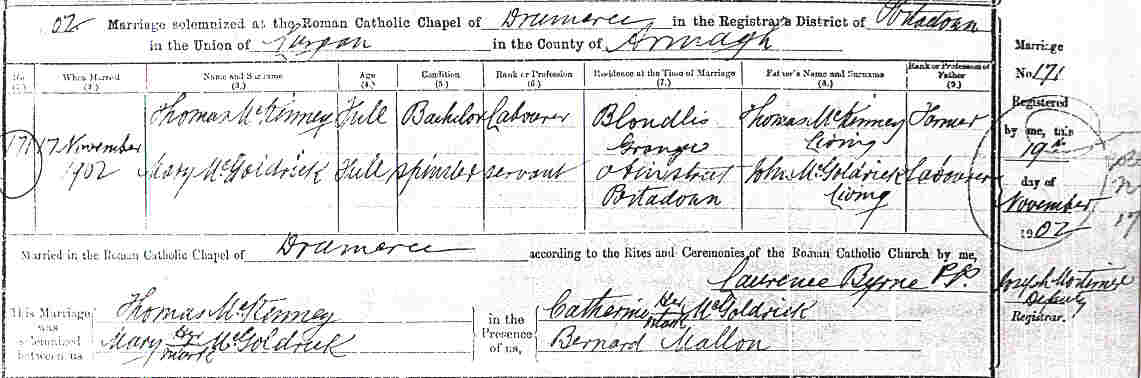 02 Marriage solemnized at the Roman Catholic Chapel of Drumcree in the Registrar's District of Portadown
in the Union of Lurgan in the County of Armagh
No. (1.) When Married (2.) Name and Surname (3.) Age (4.) Condition (5.) Rank or Profession (6.) Residence at the Time of Marriage (7.) Father's Name and Surname (8.) Rank or Profession of Father (9.)
Thomas McKinney Full Bachelor Labourer Blondlis Thomas McKinney Farmer
171 17 November Grange Living
1902 Mary McGoldrick Full spinster servant Obinstreet John McGoldrick Labourer
Portadown Living
Married in the Roman Catholic Chapel of Drumcree according to the Rites and Ceremonies of the Roman Catholic Church by me,
Laurence Byrne P.P.
This Marriage was solemnized between us,
Thomas McKinney
Mary her mark McGoldrick
in the Presence of us,
Catherine her mark McGoldrick
Bernard Mallon
Marriage
No. 171
Registered
by me, this
19th
day of
November
1902
Joseph
Deputy
Registrar.